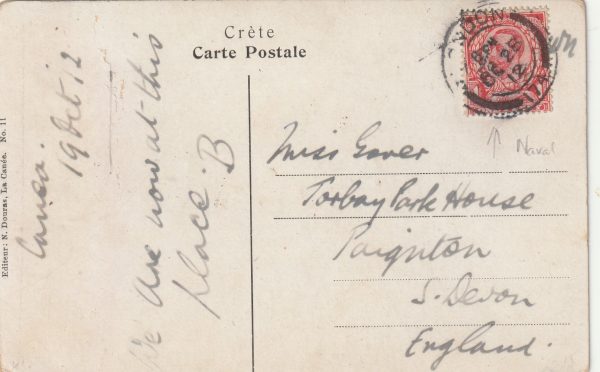 Crète
Carte Postale
Editeur: N. Douras, La Canée. No. 11
Canea.
19 Oct 12
We are now at this
place. B
Miss Gover
Torbay Park House
Paignton
S. Devon
England.
Naval